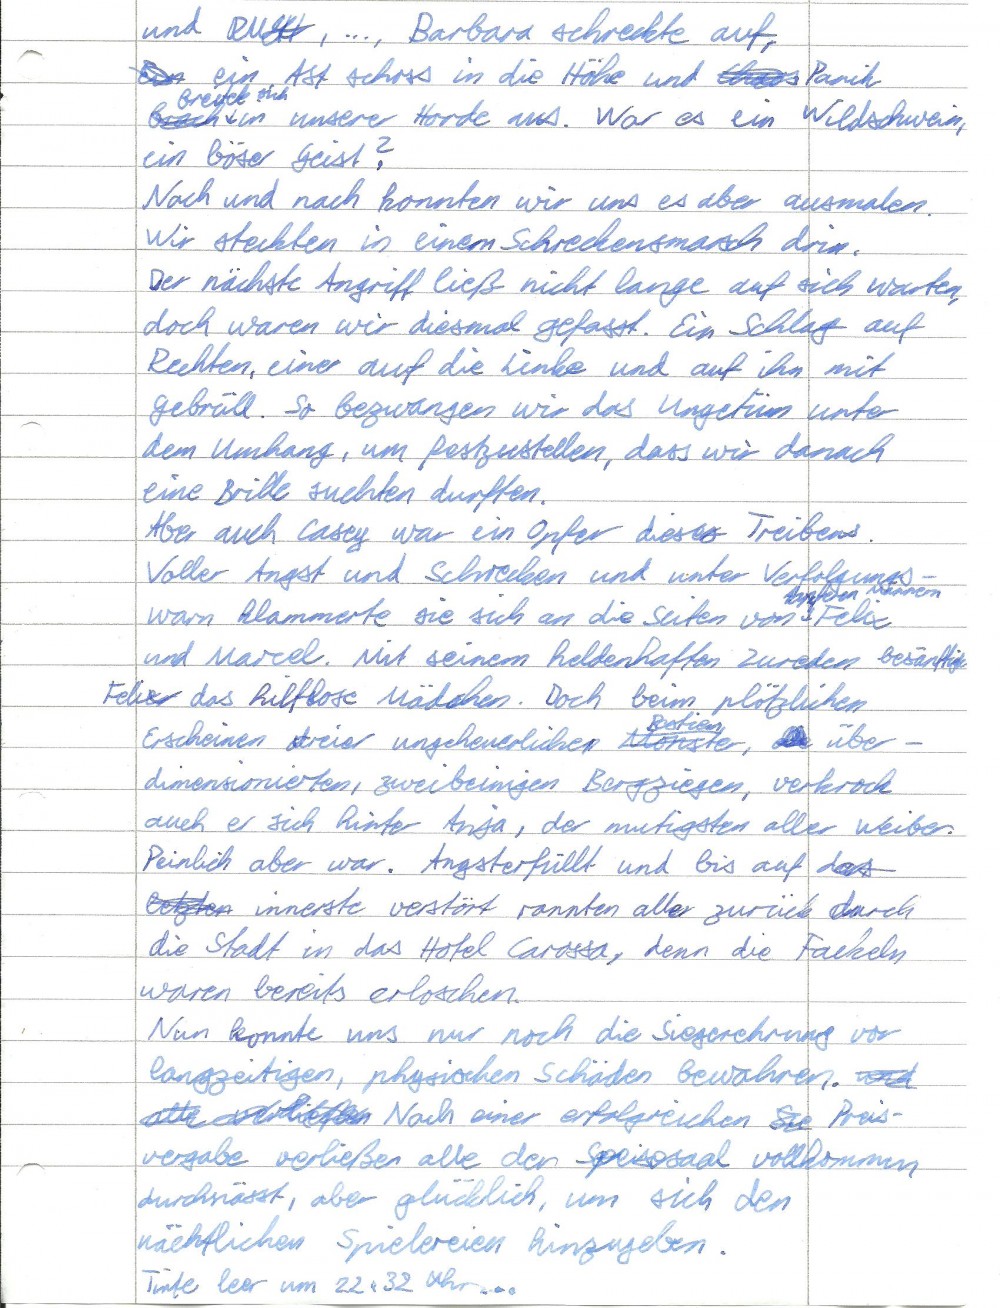 und RUMS, ..., Barbara schreckte auf,
ein Ast schoss in die Höhe und Chaos Panik
breitete sich
brach in unserer Horde aus. War es ein Wildschwein,
ein böser Geist?
Nach und nach konnten wir uns es aber ausmalen.
Wir steckten in einem Schreckensmarsch drin.
Der nächste Angriff ließ nicht lange auf sich warten,
doch waren wir diesmal gefasst. Ein Schlag auf
Rechten, einer auf die Linke und auf ihn mit
gebrüll. So bezwangen wir das Ungetüm unter
dem Umhang, um festzustellen, dass wir danach
eine Brille suchten durften.
Aber auch Casey war ein Opfer dieses Treibens.
Voller Angst und Schrecken und unter Verfolgungs-
warn klammerte sie sich an die Seiten von Felix
tapferen Männern
und Marcel. Mit seinem heldenhaften Zureden besänftigte
Felix das hilflose Mädchen. Doch beim plötzlichen
Erscheinen dreier ungeheuerlicher Monster, über-
Bestien
dimensionierten, zweibeinigen Bergziegen, verkroch
auch er sich hinter Anja, der mutigsten aller Weiber.
Peinlich aber war. Angsterfüllt und bis auf das
letzten innerste verstört rannten aller zurück durch
die Stadt in das Hotel Carossa, denn die Fackeln
waren bereits erloschen.
Nun konnte uns nur noch die Siegerehrung vor
langzeitigen, physischen Schäden bewahren. und
alle verließen Nach einer erfolgreichen Sie Preis-
vergabe verließen alle den Speisesaal vollkommen
durchnässt, aber glücklich, um sich den
nächtlichen Spielereien hinzugeben.
Tinte leer um 22.32 Uhr....